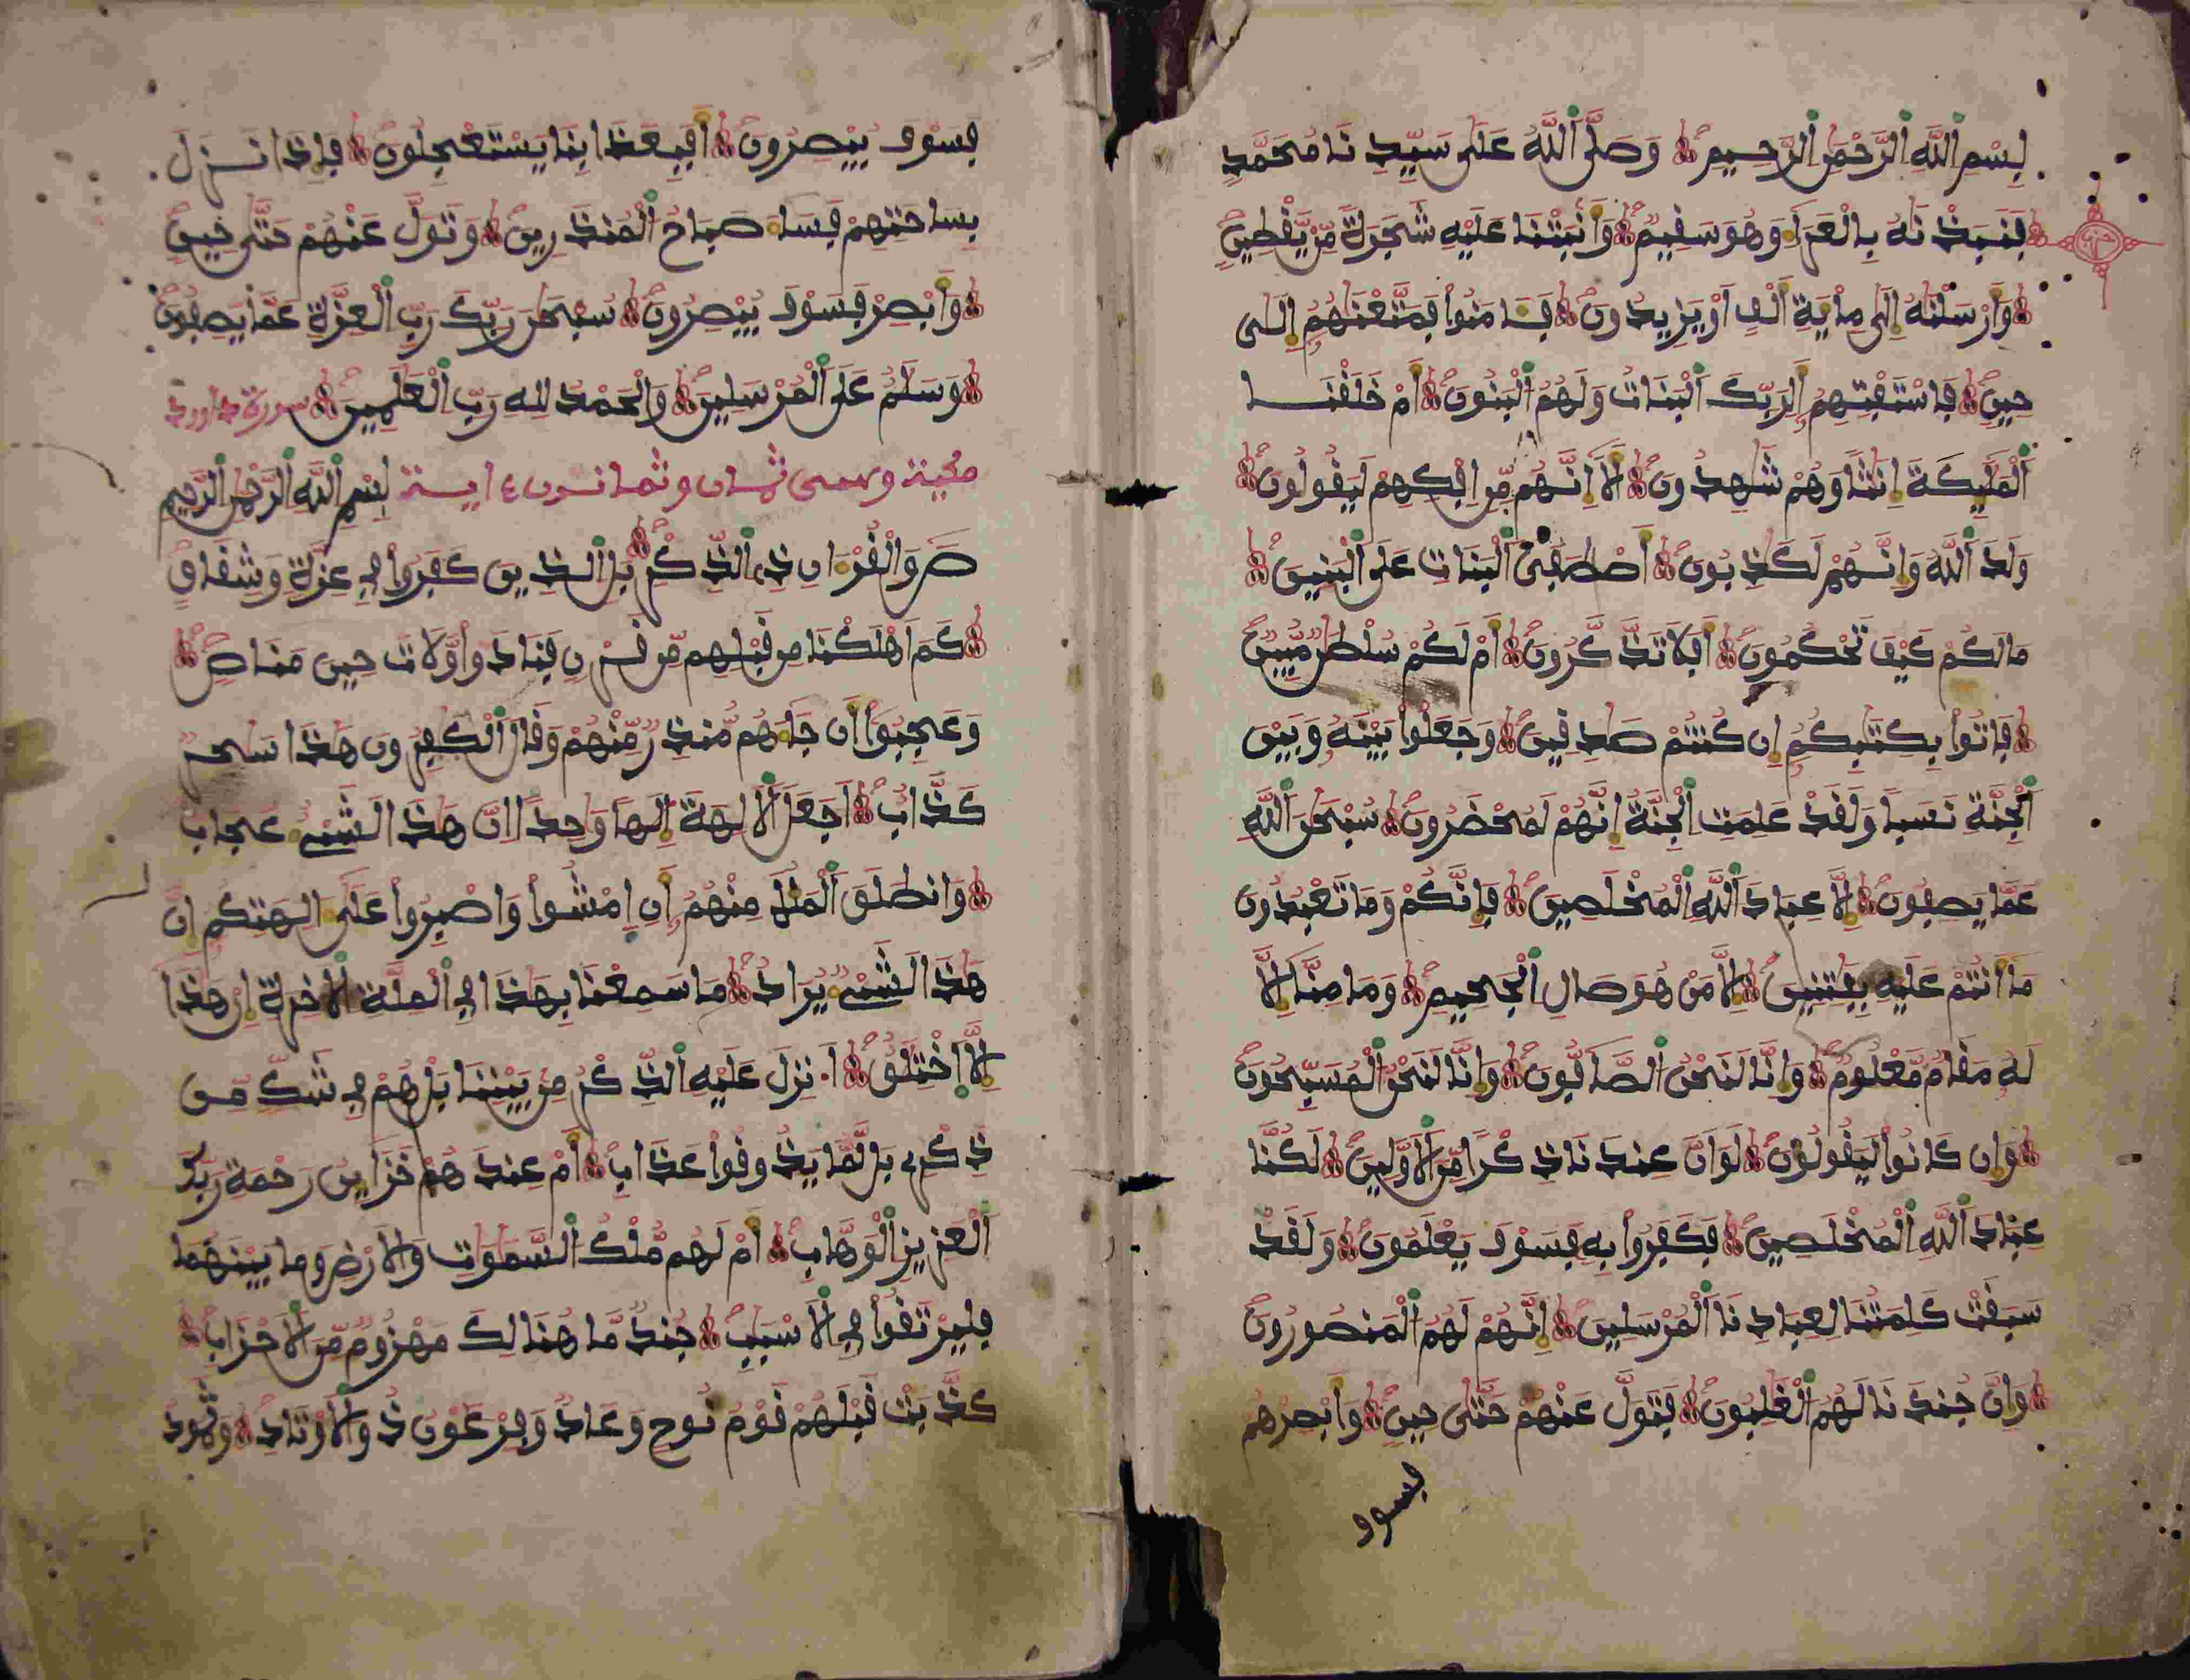 بِسْمِ اللَّهِ الرَّحْمَنِ الرَّحِيمِ وَصَلَّى اللَّهُ عَلَى سَيِّدِنَا مُحَمَّدٍ
حزب
فَنَبَذْنَهُ بِالْعَرَا وَهُوَ سَقِيمٌ وَأَنْبَتْنَا عَلَيْهِ شَجَرَةً مِّنْ يَّقْطِينٍ
وَأَرْسَلْنَهُ إِلَى مِاْيَةِ أَلْفٍ أَوْ يَزِيدُونَ فَـَامَنُواْ فَمَتَّعْنَهُمُ إِلَى
حِينٍ فَاسْتَفْتِهِمُ أَلِرَبِّكَ الْبَنَاتُ وَلَهُمُ الْبَنُونَ أَمْ خَلَقْنَا
الْمَلَيِكَةَ إِنَثًا وَهُمْ شَهِدُونَ أَلَا إِنَّهُم مِّنِ افْكِهِمْ لَيَقُولُونَ
وَلَدَ اللَّهُ وَإِنَّهُمْ لَكَذِبُونَ أَصْطَفَى الْبَنَاتِ عَلَى الْبَنِينَ
مَا لَكُمْ كَيْفَ تَحْكُمُونَ أَفَلَا تَذَّكَّرُونَ أَمْ لَكُمْ سُلْطَنٌ مُّبِينٌ
فَاتُواْ بِكِتَبِكُمُ إِن كُنتُمْ صَدِقِينَ وَجَعَلُواْ بَيْنَهُ وَبَيْنَ
الْجِنَّةِ نَسَبًا وَلَقَدْ عَلِمَتِ الْجِنَّةُ إِنَّهُمْ لَمُحْضَرُونَ سُبْحَنَ اللَّهِ
عَمَّا يَصِفُونَ إِلَّا عِبَادَ اللَّهِ الْمُخْلَصِينَ فَإِنَّكُمْ وَمَا تَعْبُدُونَ
مَا أَنتُمْ عَلَيْهِ بِفَتِنِينَ إِلَّا مَنْ هُوَ صَالِ الْجَحِيمِ وَمَا مِنَّا إِلَّا
لَهُ مَقَامٌ مَّعْلُومٌ وَإِنَّا لَنَحْنُ الصَّافُّونَ وَإِنَّا لَنَحْنُ الْمُسَبِّحُونَ
وَإِن كَانُواْ لَيَقُولُونَ لَوَ أَنَّ عِندَنَا ذِكْرًا مِّنَ الْأَوَّلِينَ لَكُنَّا
عِبَادَ اللَّهِ الْمُخْلَصِينَ فَكَفَرُواْ بِهِ فَسَوْفَ يَعْلَمُونَ وَلَقَدْ
سَبَقَتْ كَلِمَتُنَا لِعِبَادِنَا الْمُرْسَلِينَ إِنَّهُمْ لَهُمُ الْمَنصُورُونَ
وَإِنَّ جُندَنَا لَهُمُ الْغَلِبُونَ فَتَوَلَّ عَنْهُمْ حَتَّى حِينٍ وَأَبْصِرْهُمْ
فسوف
فَسَوْفَ يُبْصِرُونَ أَفَبِعَذَابِنَا يَسْتَعْجِلُونَ فَإِذَا نَزَلَ
بِسَاحَتِهِمْ فَسَاءَ صَبَاحُ الْمُنذَرِينَ وَتَوَلَّ عَنْهُمْ حَتَّى حِينٍ
وَأَبْصِرْ فَسَوْفَ يُبْصِرُونَ سُبْحَنَ رَبِّكَ رَبِّ الْعِزَّةِ عَمَّا يَصِفُونَ
وَسَلَمٌ عَلَى الْمُرْسَلِينَ وَالْحَمْدُ لِلهِ رَبِّ الْعَلَمِينَ سورة داوود
مكية وهى ثمان وثمانون ءاية بِسْمِ اللَّهِ الرَّحْمَنِ الرَّحِيمِ
صَ وَالْقُرْءَانِ ذِى الذِّكْرِ بَلِ الَّذِينَ كَفَرُواْ فِى عِزَّةٍ وَشِقَاقٍ
كَمَ أَهْلَكْنَا مِن قَبْلِهِم مِّن قَرْنٍ فَنَادَواْ وَّلَاتَ حِينَ مَنَاصٍ
وَعَجِبُواْ أَن جَاءَهُم مُّنذِرٌ مِّنْهُمْ وَقَالَ الْكَفِرُونَ هَذَا سَحِرٌ
كَذَّابٌ أَجَعَلَ الْأَلِهَةَ إِلَهًا وَحِدًا إِنَّ هَذَا لَشَىْءٌ عُجَابٌ
وَانطَلَقَ الْمَلَأُ مِنْهُمُ أَنِ إِمْشُواْ وَاصْبِرُواْ عَلَى ءَالِهَتِكُمُ إِنَّ
هَذَا لَشَىْءٌ يُرَادُ مَا سَمِعْنَا بِهَذَا فِى الْمِلَّةِ الْأَخِرَةِ إِنْ هَذَا
إِلَّا اَخْتِلَقٌ أَ.نزِلَ عَلَيْهِ الذِّكْرُ مِن بَيْنِنَا بَلْ هُمْ فِى شَكٍّ مِّن
ذِكْرِى بَل لَّمَّا يَذُوقُواْ عَذَابِ أَمْ عِندَهُمْ خَزَايِنُ رَحْمَةِ رَبِّكَ
الْعَزِيزِ الْوَهَّابِ أَمْ لَهُم مُّلْكُ السَّمَوَتِ وَالْأَرْضِ وَمَا بَيْنَهُمَا
فَلْيَرْتَقُواْ فِى الْأَسْبَبِ جُندٌ مَّا هُنَالِكَ مَهْزُومٌ مِّنَ الْأَحْزَابِ
كَذَّبَتْ قَبْلَهُمْ قَوْمُ نُوحٍ وَعَادٌ وَفِرْعَوْنُ ذُو الْأَوْتَادِ وَثَمُودُ